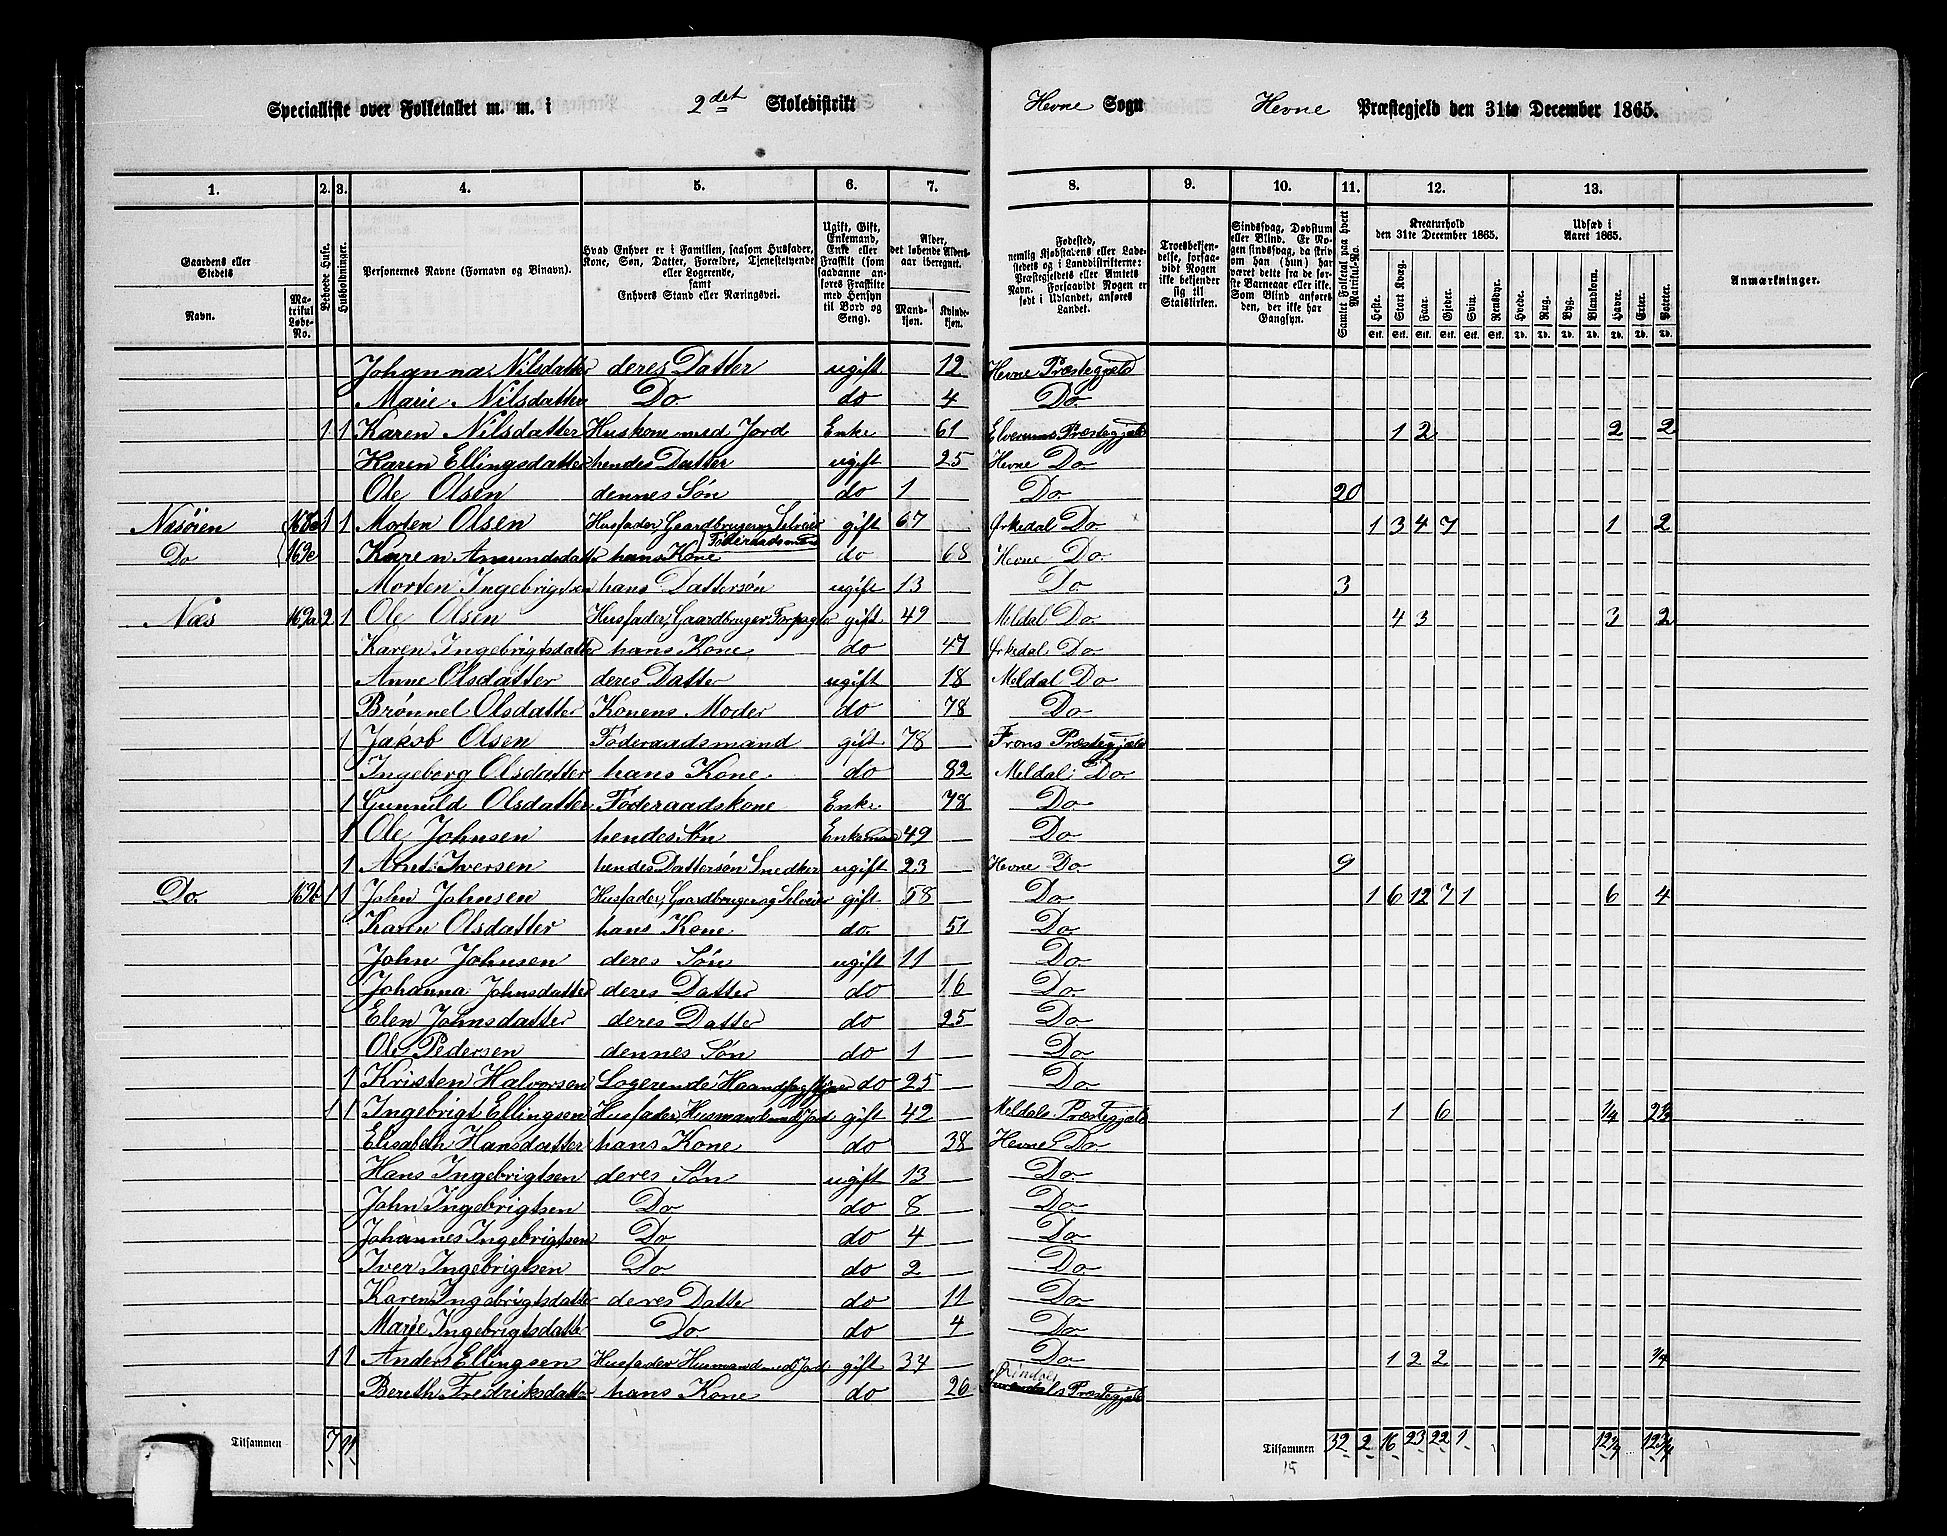 Specialliste over Folketallet m. m. i 2det Skoledistrikt Hevne Sogn Hevne Præstegjeld den 31te December 1865.
1. 2. 3. 4. 5. 6. 7. 8. 9. 10. 11. 12. 13.
Gaardens eller Stedets Navn. Matrikul Løbe-No. Beboede Huse. Husholdninger. Personernes Navne (Fornavn og Binavn). Hvad Enhver er i Familien, saasom Husfader, Kone, Søn, Datter, Forældre, Tjenestetyende eller Logerende, samt Enhvers Stand eller Næringsvei. Ugift, Gift, Enkemand, Enke eller Fraskilt (som saadanne anføres Fraskilte med Hensyn til Bord og Seng). Alder, det løbende Alders-aar iberegnet. Mandkjøn. Kvindekjøn.
Fødested, nemlig Kjøbstadens eller Ladestedets og i Landdistrikterne: Præstegjeldets eller Amtets Navn. Forsaavidt Nogen er født i Udlandet, anføres Landet. Troesbekjendelse, forsaavidt Nogen ikke bekjender sig til Statskirken. Sindssvag, Døvstum eller Blind. Er Nogen sindssvag, da skrives om han (hun) har været dette fra de første Barneaar eller ikke. Som Blind anføres den, der ikke har Gangsyn. Samlet Folketal paa hvert Matrikul-No. Kreaturhold den 31te December 1865. Heste. Stort Kvæg. Faar. Gjeder. Svin. Rensdyr. Udsæd i Aaret 1865. Hvede. Rug. Byg. Blandkorn. Havre. Erter. Poteter. Anmærkninger.
Stk. Stk. Stk. Stk. Stk. Stk. Td. Td. Td. Td. Td. Td. Td.
Johanna Nilsdatter deres Datter ugift 12 Hevne Præstegjeld
Marie Nilsdatter Do. do 4 Do.
1 1 Karen Nilsdatter Huskone med Jord Enke 61 Elverums Præstegjeld 1 2 2 2
Karen Ellingsdatter hendes Datter ugift 25 Hevne Do.
Ole Olsen dennes Søn do 1 Do. 20
Næsøien 168e 1 1 Morten Olsen Husfader Gaardbruger Selveier gift 67 Ørkedal Do. 1 3 4 7 1 2
Føderaadsmand
Do 169c Karen Amundsdatter hans Kone do 68 Hevne Do.
Morten Ingebrigtsen hans Dattersøn ugift 13 Do. 3
Næs 169a 2 1 Ole Olsen Husfader, Gaardbruger, Forpagter gift 49 Meldal Do. 4 3 3 2
Karen Ingebrigtsdatter hans Kone do 47 Ørkedal Do.
Anne Olsdatter deres Datter ugift 18 Meldal Do
Brønnel Olsdatter Konens Moder do 78 Do.
1 Jakob Olsen Føderaadsmand gift 78 Frons Præstegjeld
Ingeborg Olsdatter hans Kone. do 82 Meldal Do.
1 Gunnild Olsdatter Føderaadskone Enke 78 Do.
1 Ole Johnsen hendes Søn Enkemand 49 Do.
1 Arnt Iversen hendes Dattersøn Snedker ugift 23 Hevne Do. 9
Do. 169b 1 1 John Johnsen Husfader, Gaardbruger og Selveier gift 58 Do. 1 6 12 7 1 6 4
Karen Olsdatter hans Kone do. 51 Do.
John Johnsen deres Søn ugift 11 Do.
Johanna Johnsdatter deres Datter do 16 Do.
Elen Johnsdatter deres Datter do 25 Do.
Ole Pedersen dennes Søn do 1 Do.
1 Kristen Halvorsen Logerende do 25 Do.
1 1 Ingebrigt Ellingsen Husfader, Husmand med Jord gift 42 Meldals Præstegjeld 1 6 1/4 2 1/2
Elisabeth Hansdatter hans Kone do 38 Hevne Do.
Hans Ingebrigtsen deres Søn ugift 13 Do.
John Ingebrigtsen Do do 8 Do.
Johannes Ingebrigtsen Do do 4 Do.
Iver Ingebrigtsen Do. do 2 Do.
Karen Ingebrigtsdatter deres Datter do 11 Do.
Marie Ingebrigtsdatter Do do 4 Do.
1 1 Anders Ellingsen Husfader Husmand med Jord gift 34 Do 1 2 2 3/4
Rindal
Bereth Fredriksdatter hans Kone do 26 Surendals Præstegjeld
Tilsammen 7 11 Tilsammen 32 2 16 23 22 1 12 1/4
15